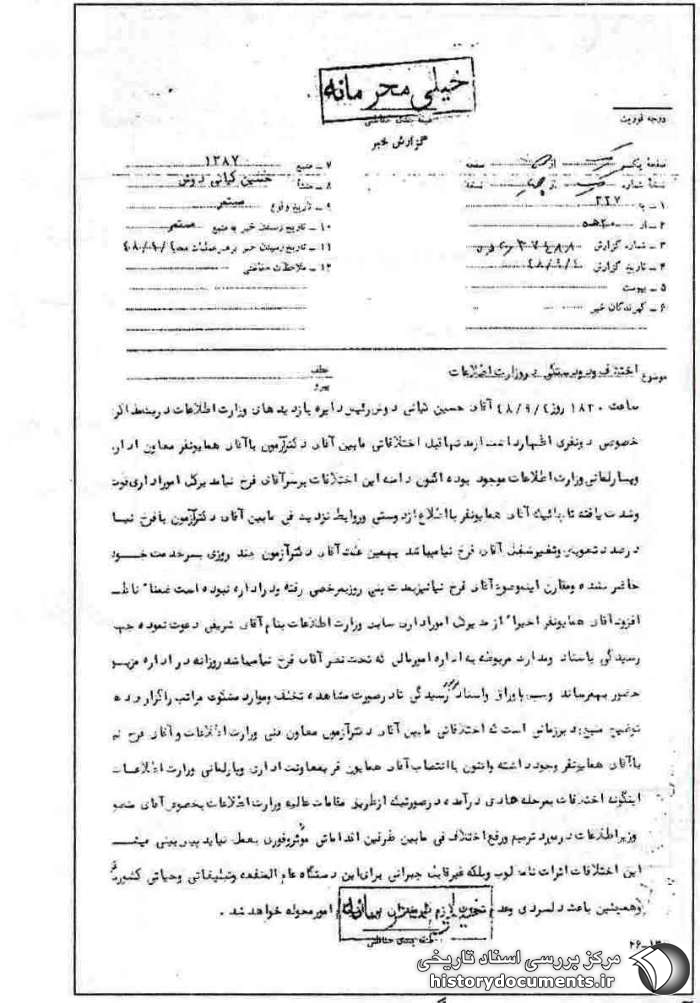 خیلی محرمانه
طبقه بندی حفاظتی
درجه فوریت
گزارش خبر
صفحه یکم از صفحه
نسخه شماره از نسخه
۱ ـ به ۲۲۷
۲ ـ از ۲۰ هـ
۳ ـ شماره گزارش
۴ ـ تاریخ گزارش ۴۸/۹/۴
۵ ـ پیوست
۶ ـ گیرندگان خبر
۷ ـ منبع ۱۳۸۷
۸ ـ منشأ حسین کیانی دوش
۹ ـ تاریخ وقوع مستمر
۱۰ ـ تاریخ رسیدن خبر به منبع مستمر
۱۱ ـ تاریخ رسیدن خبر برهبر عملیات
۱۲ ـ ملاحظات حفاظتی
موضوع اختلاف و دودستگی در وزارت اطلاعات
عطف
پیرو
ساعت ۱۸۳۰ روز ۴۸/۹/۴ آقای حسین کیانی دوش رئیس دایره بازدیدهای وزارت اطلاعات در یک مذاکره
خصوصی دونفری اظهار داشت از مدتها قبل اختلافاتی مابین آقای دکتر آزمون با آقای همایونفر معاون اداری
و پارلمانی وزارت اطلاعات موجود بوده اکنون دامنه این اختلافات بر سر آقای فرخ نیا مدیرکل امور اداری قوت
و شدت یافته تا جائیکه آقای همایونفر با اطلاع از دوستی و روابط نزدیک فی مابین آقای دکتر آزمون با فرخ نیا
درصدد تعویض و تغییر شغل آقای فرخ نیا میباشد بهمین علت آقای دکتر آزمون چند روزی بسر خدمت خود
حاضر نشده و مقارن این موضوع آقای فرخ نیا نیز بمدت یمرخصی رفته و در اداره نبوده است ضمناً
افزود آقای همایونفر اخیراً از مدیرکل امور اداری سابق وزارت اطلاعات بنام آقای شریفی دعوت نموده جهت
رسیدگی باسناد و مدارک مربوطه به اداره امور مالی که تحت نظر آقای فرخ نیا میباشد روزانه در اداره مزبور
حضور بهمرساند و سپس باوراق و اسناد رسیدگی تا در صورت مشاهده تخلف و موارد مشکوک مراتب را گزارش دهد
توضیح منبع: دیر زمانی است که اختلافاتی مابین آقای دکتر آزمون معاون فنی وزارت اطلاعات و آقای فرخ نیا
با آقای همایونفر وجود داشته و اکنون با انتصاب آقای همایون فر بمعاونت اداری و پارلمانی وزارت اطلاعات
اینگونه اختلافات بمرحله حادی درآمده در صورتیکه از طریق مقامات عالیه وزارت اطلاعات بخصوص آقای
وزیر اطلاعات در مورد ترمیم و رفع اختلاف فی مابین طرفین اقداماتی مؤثر و فوری بعمل نیاید پیش بینی میشود
این اختلافات اثرات نامطلوب و بلکه غیرقابل جبرانی برای این دستگاه عام المنفعه و تبلیغاتی و حیاتی کشور
و همچنین باعث دلسردی وعدم امور محوله خواهد شد .
خیلی محرمانه
طبقه بندی حفاظتی
۲۶-۱۳
مرکز بررسی اسناد تاریخی
historydocuments.ir